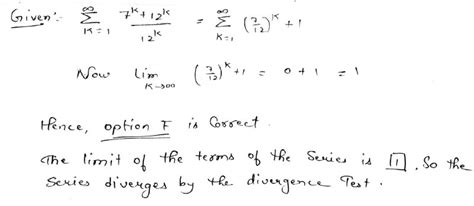 Given:- ∞ Σ K=1 7^k + 12^k / 12^k = ∞ Σ K=1 (7/12)^k + 1
Now Lim K→∞ (7/12)^k + 1 = 0 + 1 = 1
Hence, option F is Correct.
The limit of the terms of the Series is 1. So the
Series diverges by the divergence Test.